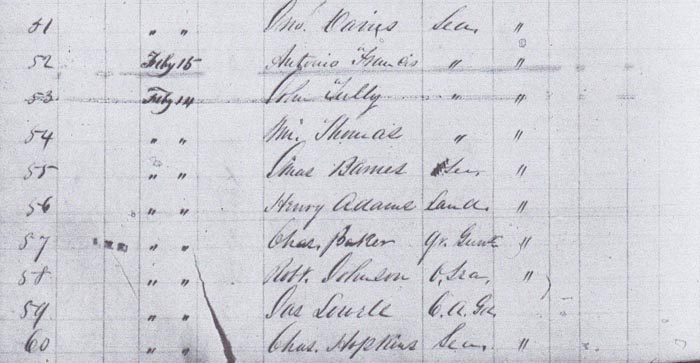 51 " " Jno. Davis Sea. "
52 Feby 15 Antonio Francis " "
53 Feby 14 John Tully " "
54 " " Wm. Thomas " "
55 " " Barnes Sea. "
56 " " Henry Adams Land. "
57 " " Chas. Baker Qr. Gunr "
58 " " Robt. Johnson O. Sea. "
59 " " Jas
60 " " Chas. Hopkins Sea. "